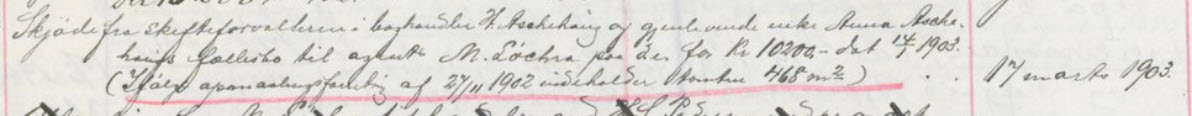 Skjöde fra skifteforvalteren i boghandler H. Aschehoug og gjenlevende enke Anna Asche-
hougs fællesbo til agent M. Lochra paa d.e. for Kr 10200,- dat 14/1 1903.
(Ifølge opmaalingsforretning af 27/11 1902 indeholder tomten 468 m²) . . 17 marts 1903.